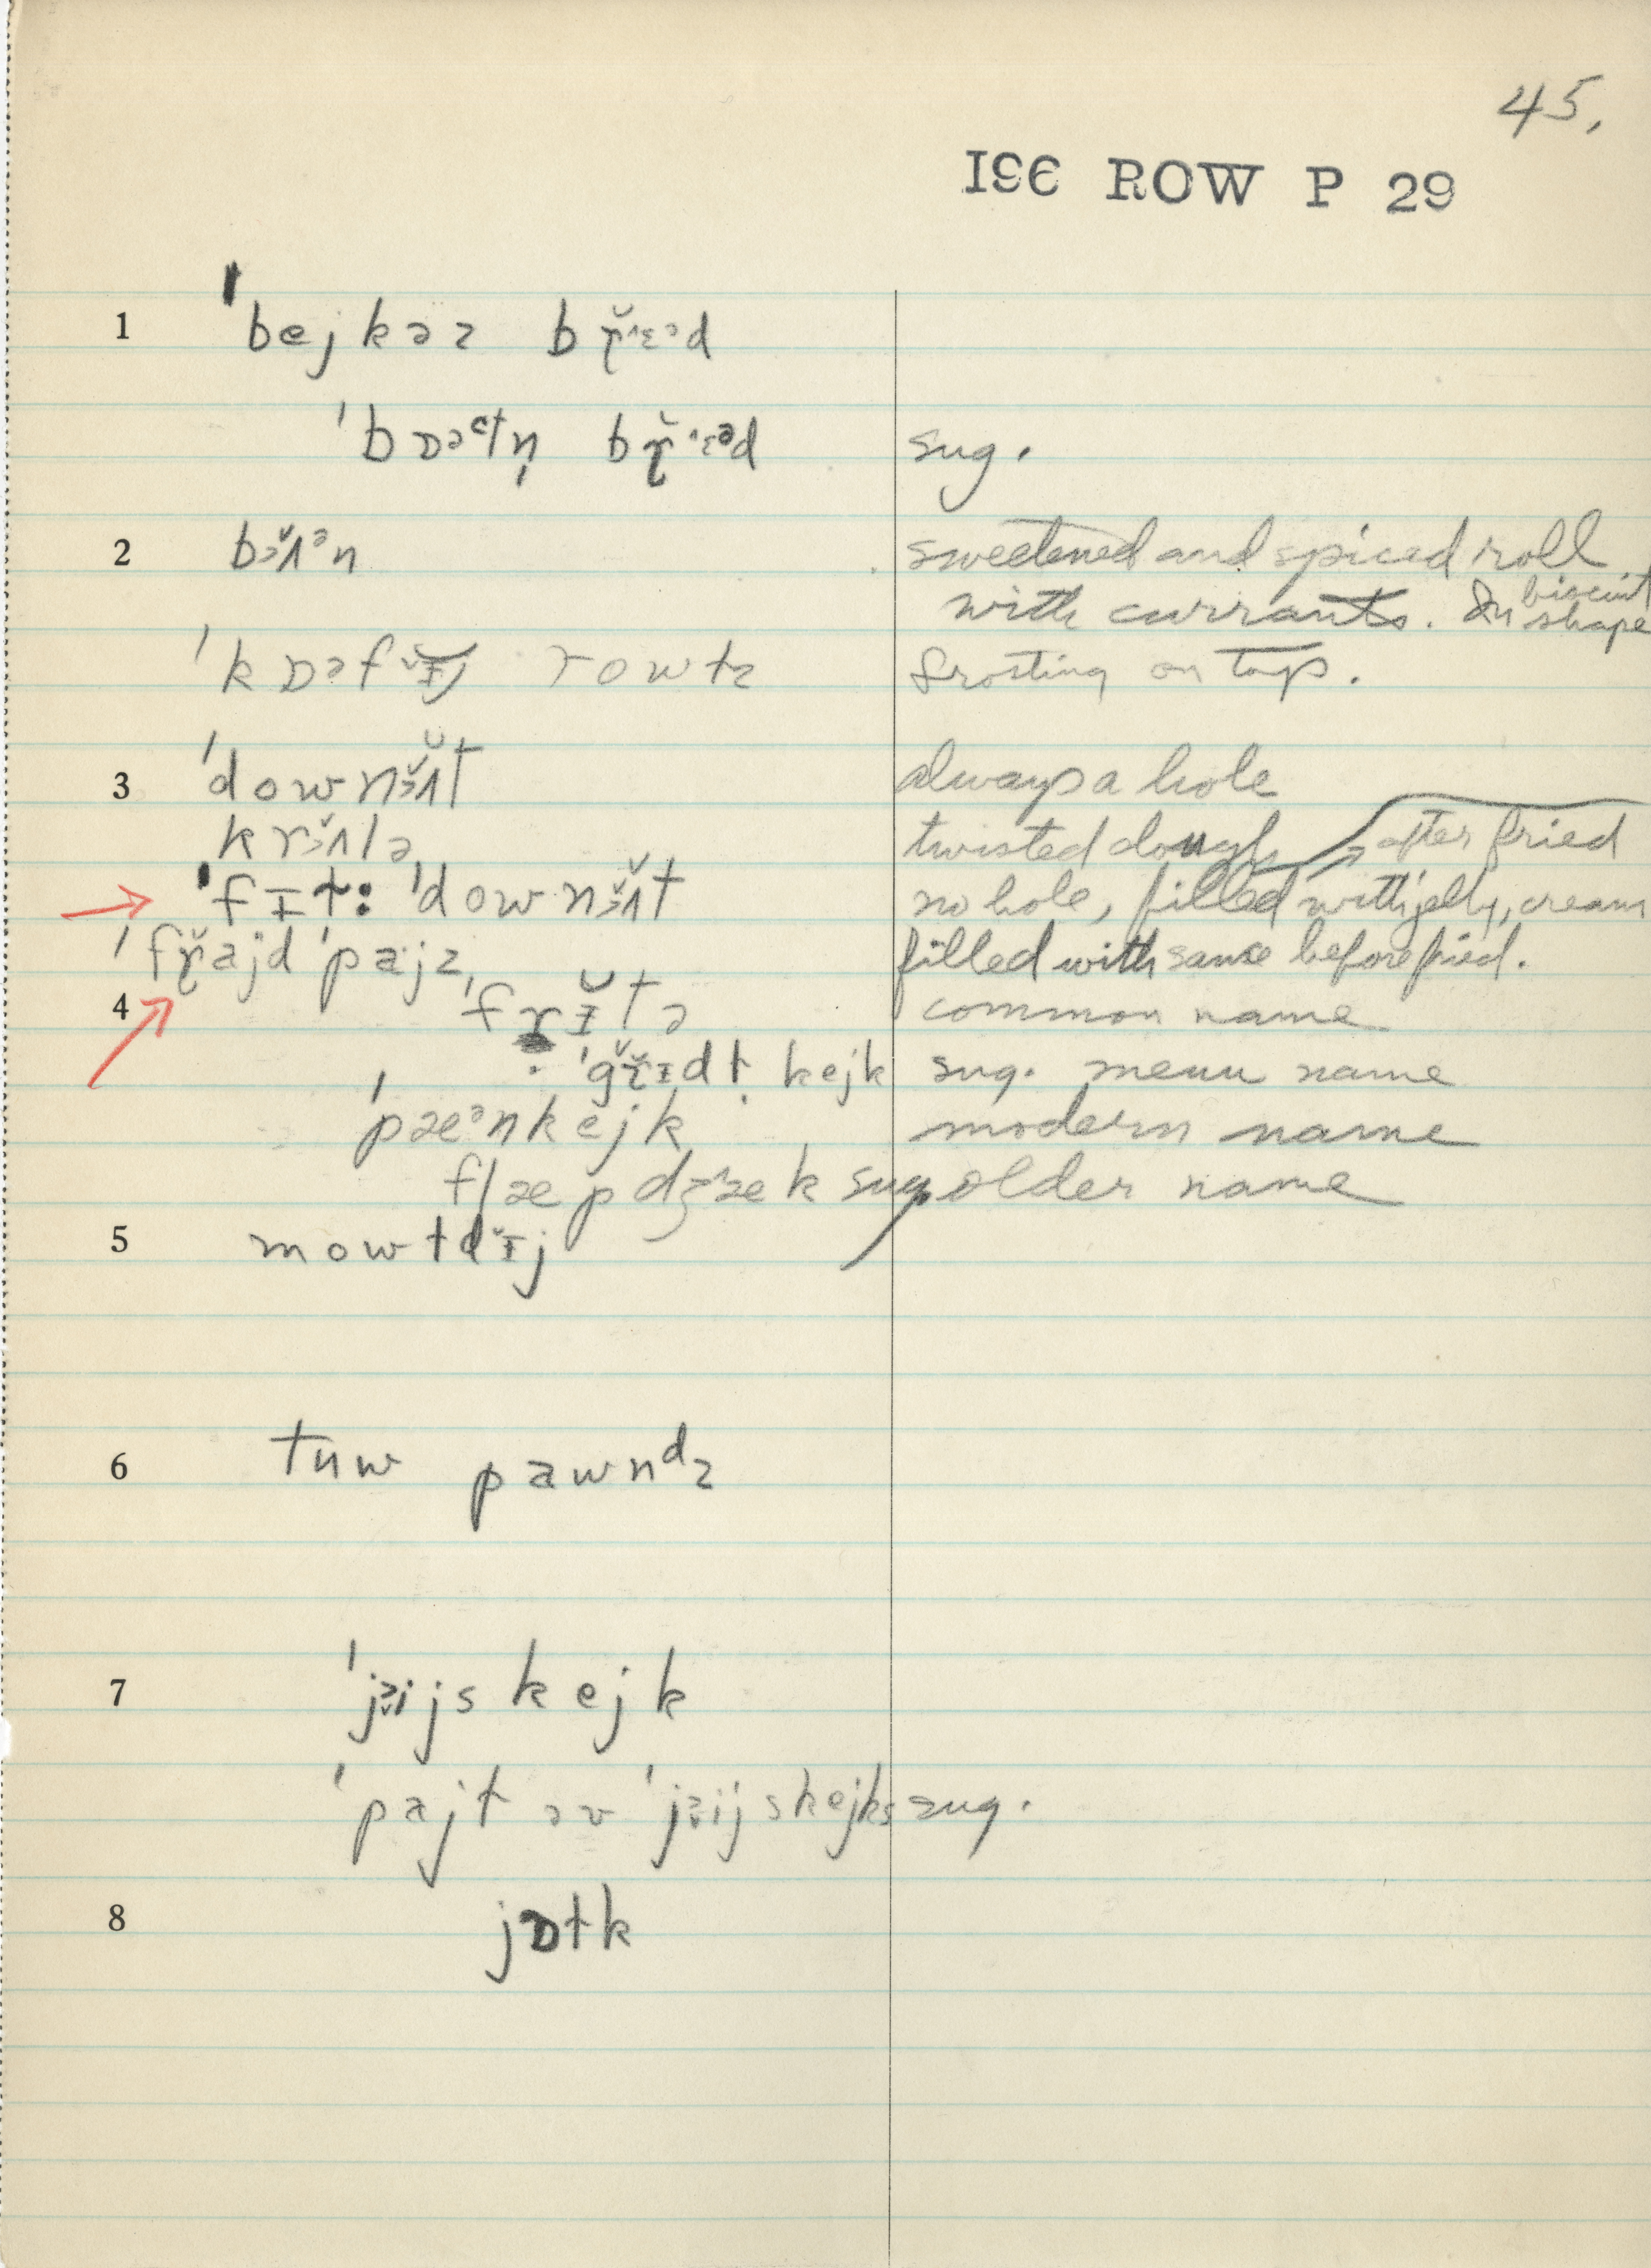 45.
196 ROW P 29
1 ˈbejkəz bɽ̆ɛəd
ˈbɒətn̩ bɽ̆ɛəd sug.
2 bɜ̆ʌᵊn sweetened and spiced roll
with currants. In biscuit shape
ˈkɒəfɪ̆j rowɫz frosting on top.
3 ˈdownɜ̆ʌt always a hole
krɜ̆ʌlə twisted dough
ˈfɪɫ: ˈdownɜ̆ʌt no hole, filled with jelly, cream after fried
ˈfɽ̆ajd ˈpajz filled with same before fried.
4 ˈfɽɪ̆tə common name
ˈgɽ̆ɪdɫ kejk sug. menu name
ˈpæᵊnkejk modern name
flæpdʒæk sug. older name
5 mowɫdɪ̆j
6 tuw pawnᵈz
7 ˈjɪijskejk
ˈpajt əv ˈjɪijskejks sug.
8 jɒɫk